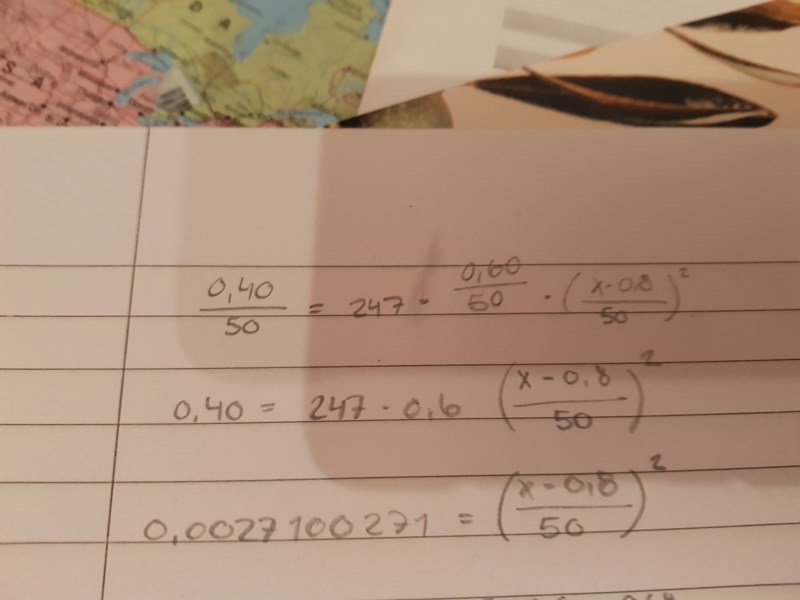 D A
S A
0,40/50 = 247 · 0,60/50 · (x-0,8/50)²
0,40 = 247 · 0,6 (x-0,8/50)²
0,0027100271 = (x-0,8/50)²